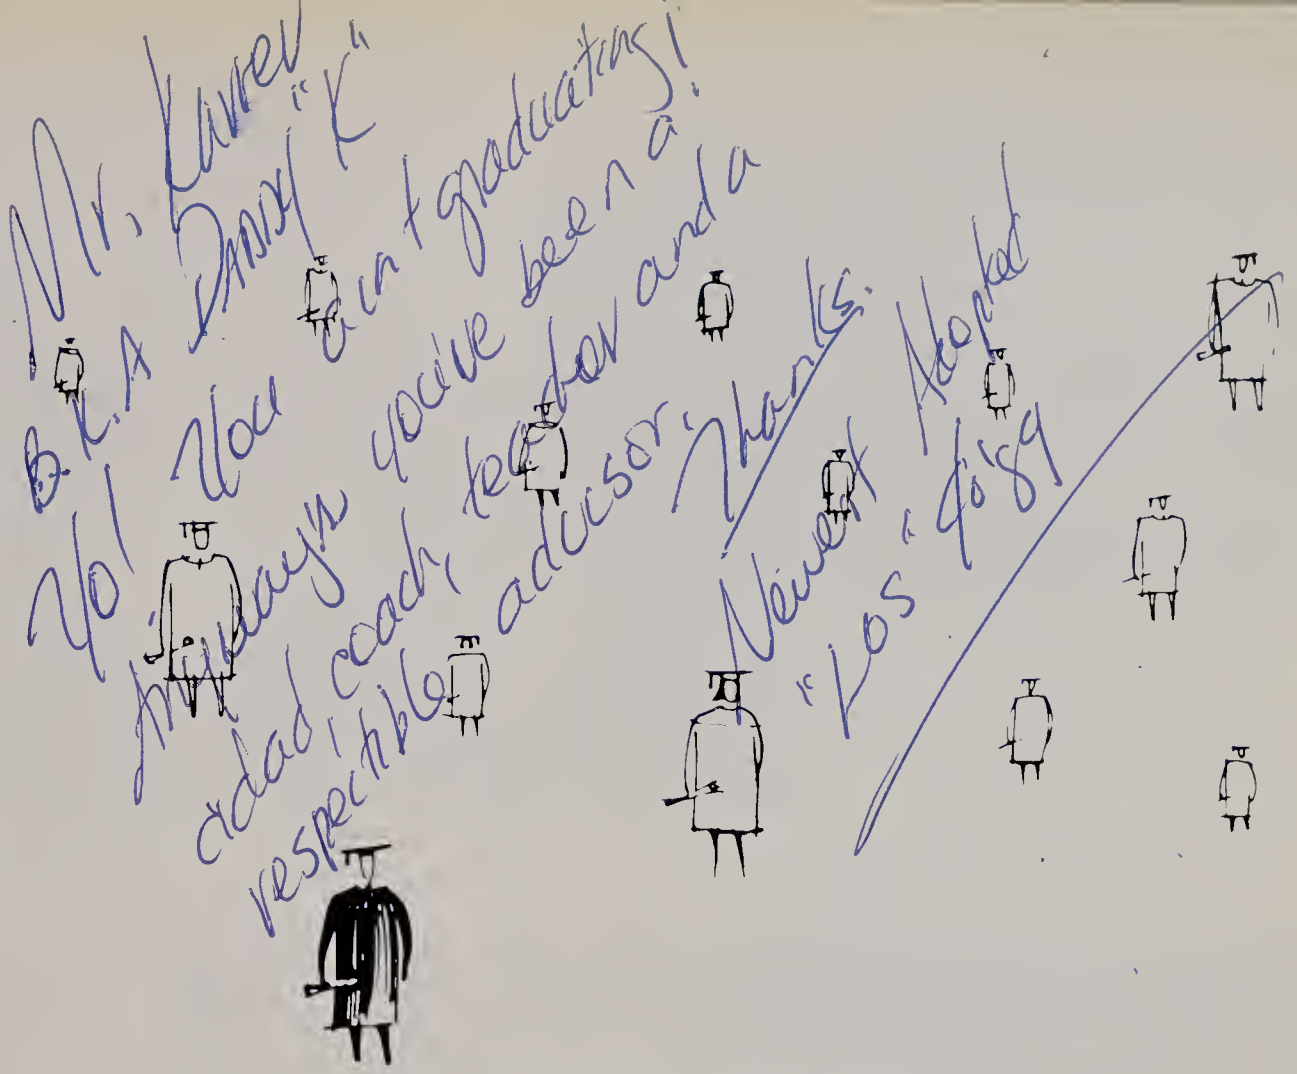 Mr. Kurrel
B.K.A DADDY "K"
Yo! You ain't graduating!
Anyway's you've been a
dad, coach, teacher and a
respectible advisor.
Thanks.
Newest Adopted
"Los" 40 '89